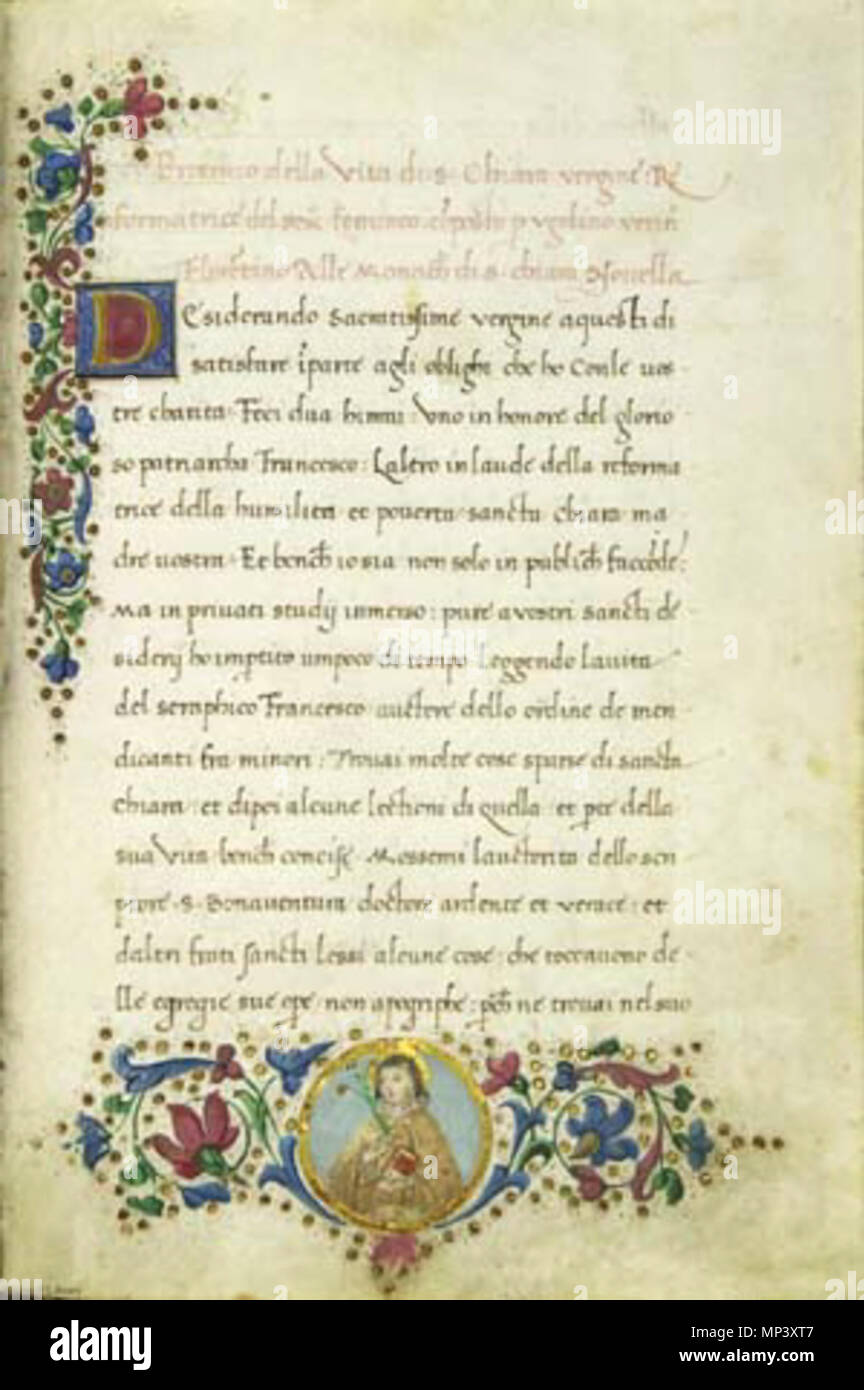 della Vita di s. Chiara vergine Re
formatrice del
Fiorētino Alle Monach di s. chiara Novella
Desiderando Sacratissime vergine aquesti di
satisfare ī parte agli oblighi che ho Conle uos
tre charita. Feci dua himni: Uno in honore del glorio
so patriarcha Francesco: Laltro in laude della reforma
trice della humilita et pouerta sancta chiara ma
dre uostra. Et bench io sia non solo in publich faccēde:
Ma in priuati studij inmerso: pure a vostri sancti de
siderij ho impartito umpoco di tempo Leggendo la uita
del seraphico Francesco auctore dello ordine de men
dicanti fra minori: Trouai molte cose sparse di sancta
chiara: et dipoi alcune lectioni di quella et pte della
sua Vita bench concise. Mossemi lauctorita dello scri
ptore .S. Bonauentura doctore ardente et verace: et
daltri frati sancti lessi alcune cose: che toccauono de
lle egregie sue ope non apogriphe: pch ne trouai nel suo
alamy
a
alamy
Image ID: MP3XT7
www.alamy.com